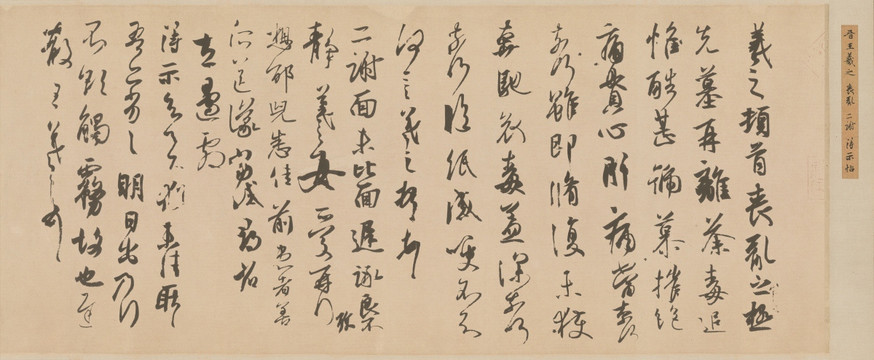 晋王羲之 喪亂 二謝 得示帖
羲之頓首喪亂之極
先墓再離荼毒追
惟酷甚號慕摧絶
痛貫心肝痛當奈何
奈何雖即脩復未獲
奔馳哀毒益深奈何
奈何臨紙感哽不知
何言羲之頓首頓首
二謝面未比面遲詠良不
靜羲之女愛再拜
想邵兒悉佳前患者善
所送議當試尋省
左邊劇
得示知足下猶未佳耿耿
吾亦劣劣明日出乃行
不欲觸霧故也遲
散王羲之頓首